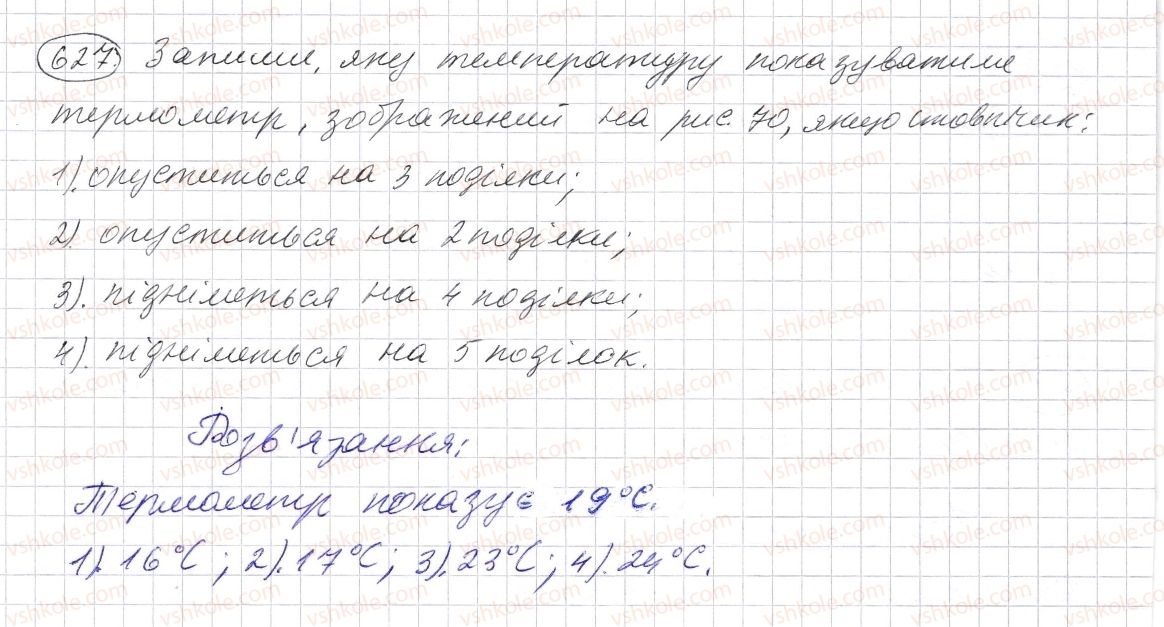 627. Запиши, яку температуру показуватиме
термометр, зображений на рис. 70, якщо стовпчик:
1). опуститься на 3 поділки;
2). опуститься на 2 поділки;
3). підніметься на 4 поділки;
4). підніметься на 5 поділок.
Розв'язання:
Термометр показує 19°C.
1). 16°C; 2). 17°C; 3). 23°C; 4). 24°C.